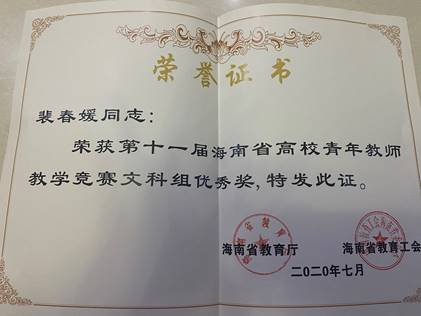 荣誉证书
裴春媛同志:
荣获第十一届海南省高校青年教师
教学竞赛文科组优秀奖,特发此证。
海南省教育厅
海南省教育工会
二〇二〇年七月